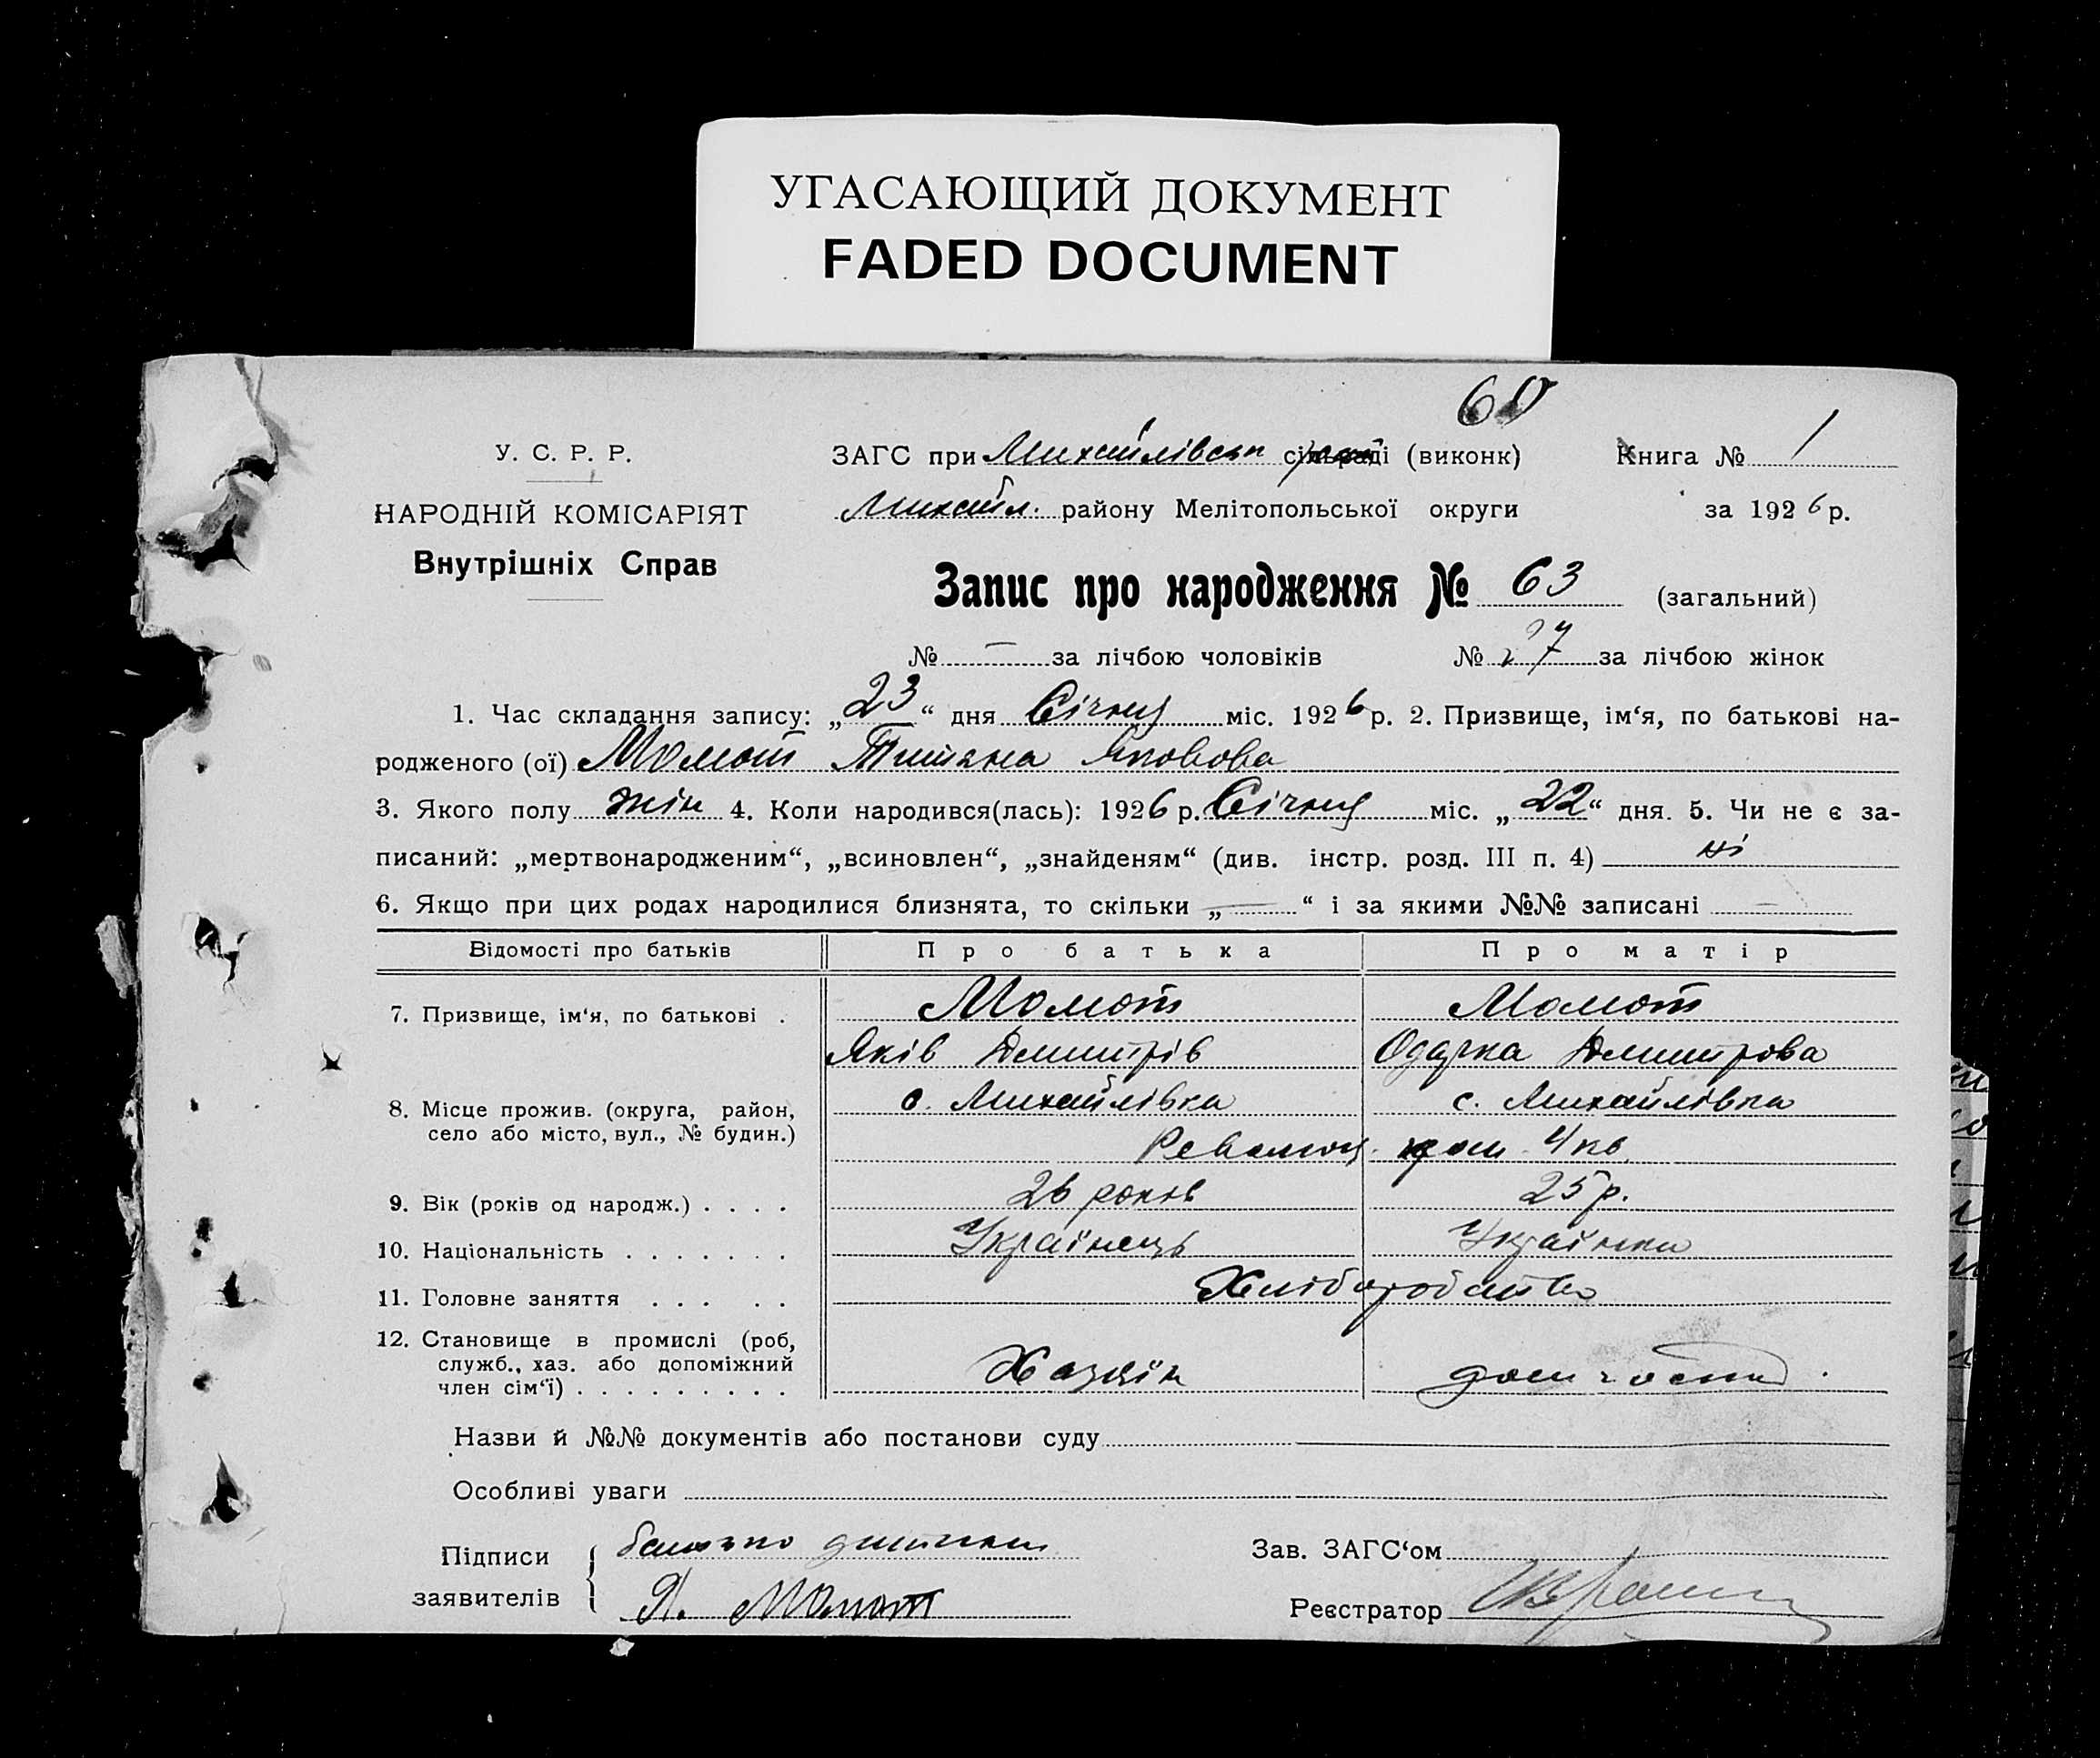 УГАСАЮЩИЙ ДОКУМЕНТ
FADED DOCUMENT
60
У. С. Р. Р.
НАРОДНІЙ КОМІСАРІЯТ
Внутрішніх Справ
ЗАГС при Михайлівськ сільраді (виконк)
Михайл. району Мелітопольської округи
Книга № 1
за 1926 р.
Запис про народження № 63 (загальний)
№ — за лічбою чоловіків № 27 за лічбою жінок
1. Час складання запису: „23“ дня Січня міс. 1926 р. 2. Призвище, ім‘я, по батькові на-
родженого (ої) Момот Титяна Яковова
3. Якого полу жін 4. Коли народився(лась): 1926 р. Січня міс. „22“ дня. 5. Чи не є за-
писаний: „мертвонародженим“, „всиновлен“, „знайденям“ (див. інстр. розд. III п. 4) ні
6. Якщо при цих родах народилися близнята, то скільки „—“ і за якими №№ записані —
Відомості про батьків Про батька Про матір
7. Призвище, ім‘я, по батькові . Момот Момот
Яків Дмитрів Одарка Дмитрова
8. Місце прожив. (округа, район,
село або місто, вул., № будин.)
с. Михайлівка с. Михайлівка
Революц. 4 кв.
9. Вік (років од народж.) . . . . 26 років 25 р.
10. Національність . . . . . . . Українець Українка
11. Головне заняття . . . . . Хліборобство
12. Становище в промислі (роб,
служб., хаз. або допоміжний
член сім‘ї) . . . . . . . . .
Хазяїн дом госпо
Назви й №№ документів або постанови суду
Особливі уваги
Підписи
заявителів
батько дитини
Я. Момот
Зав. ЗАГС‘ом
Реєстратор